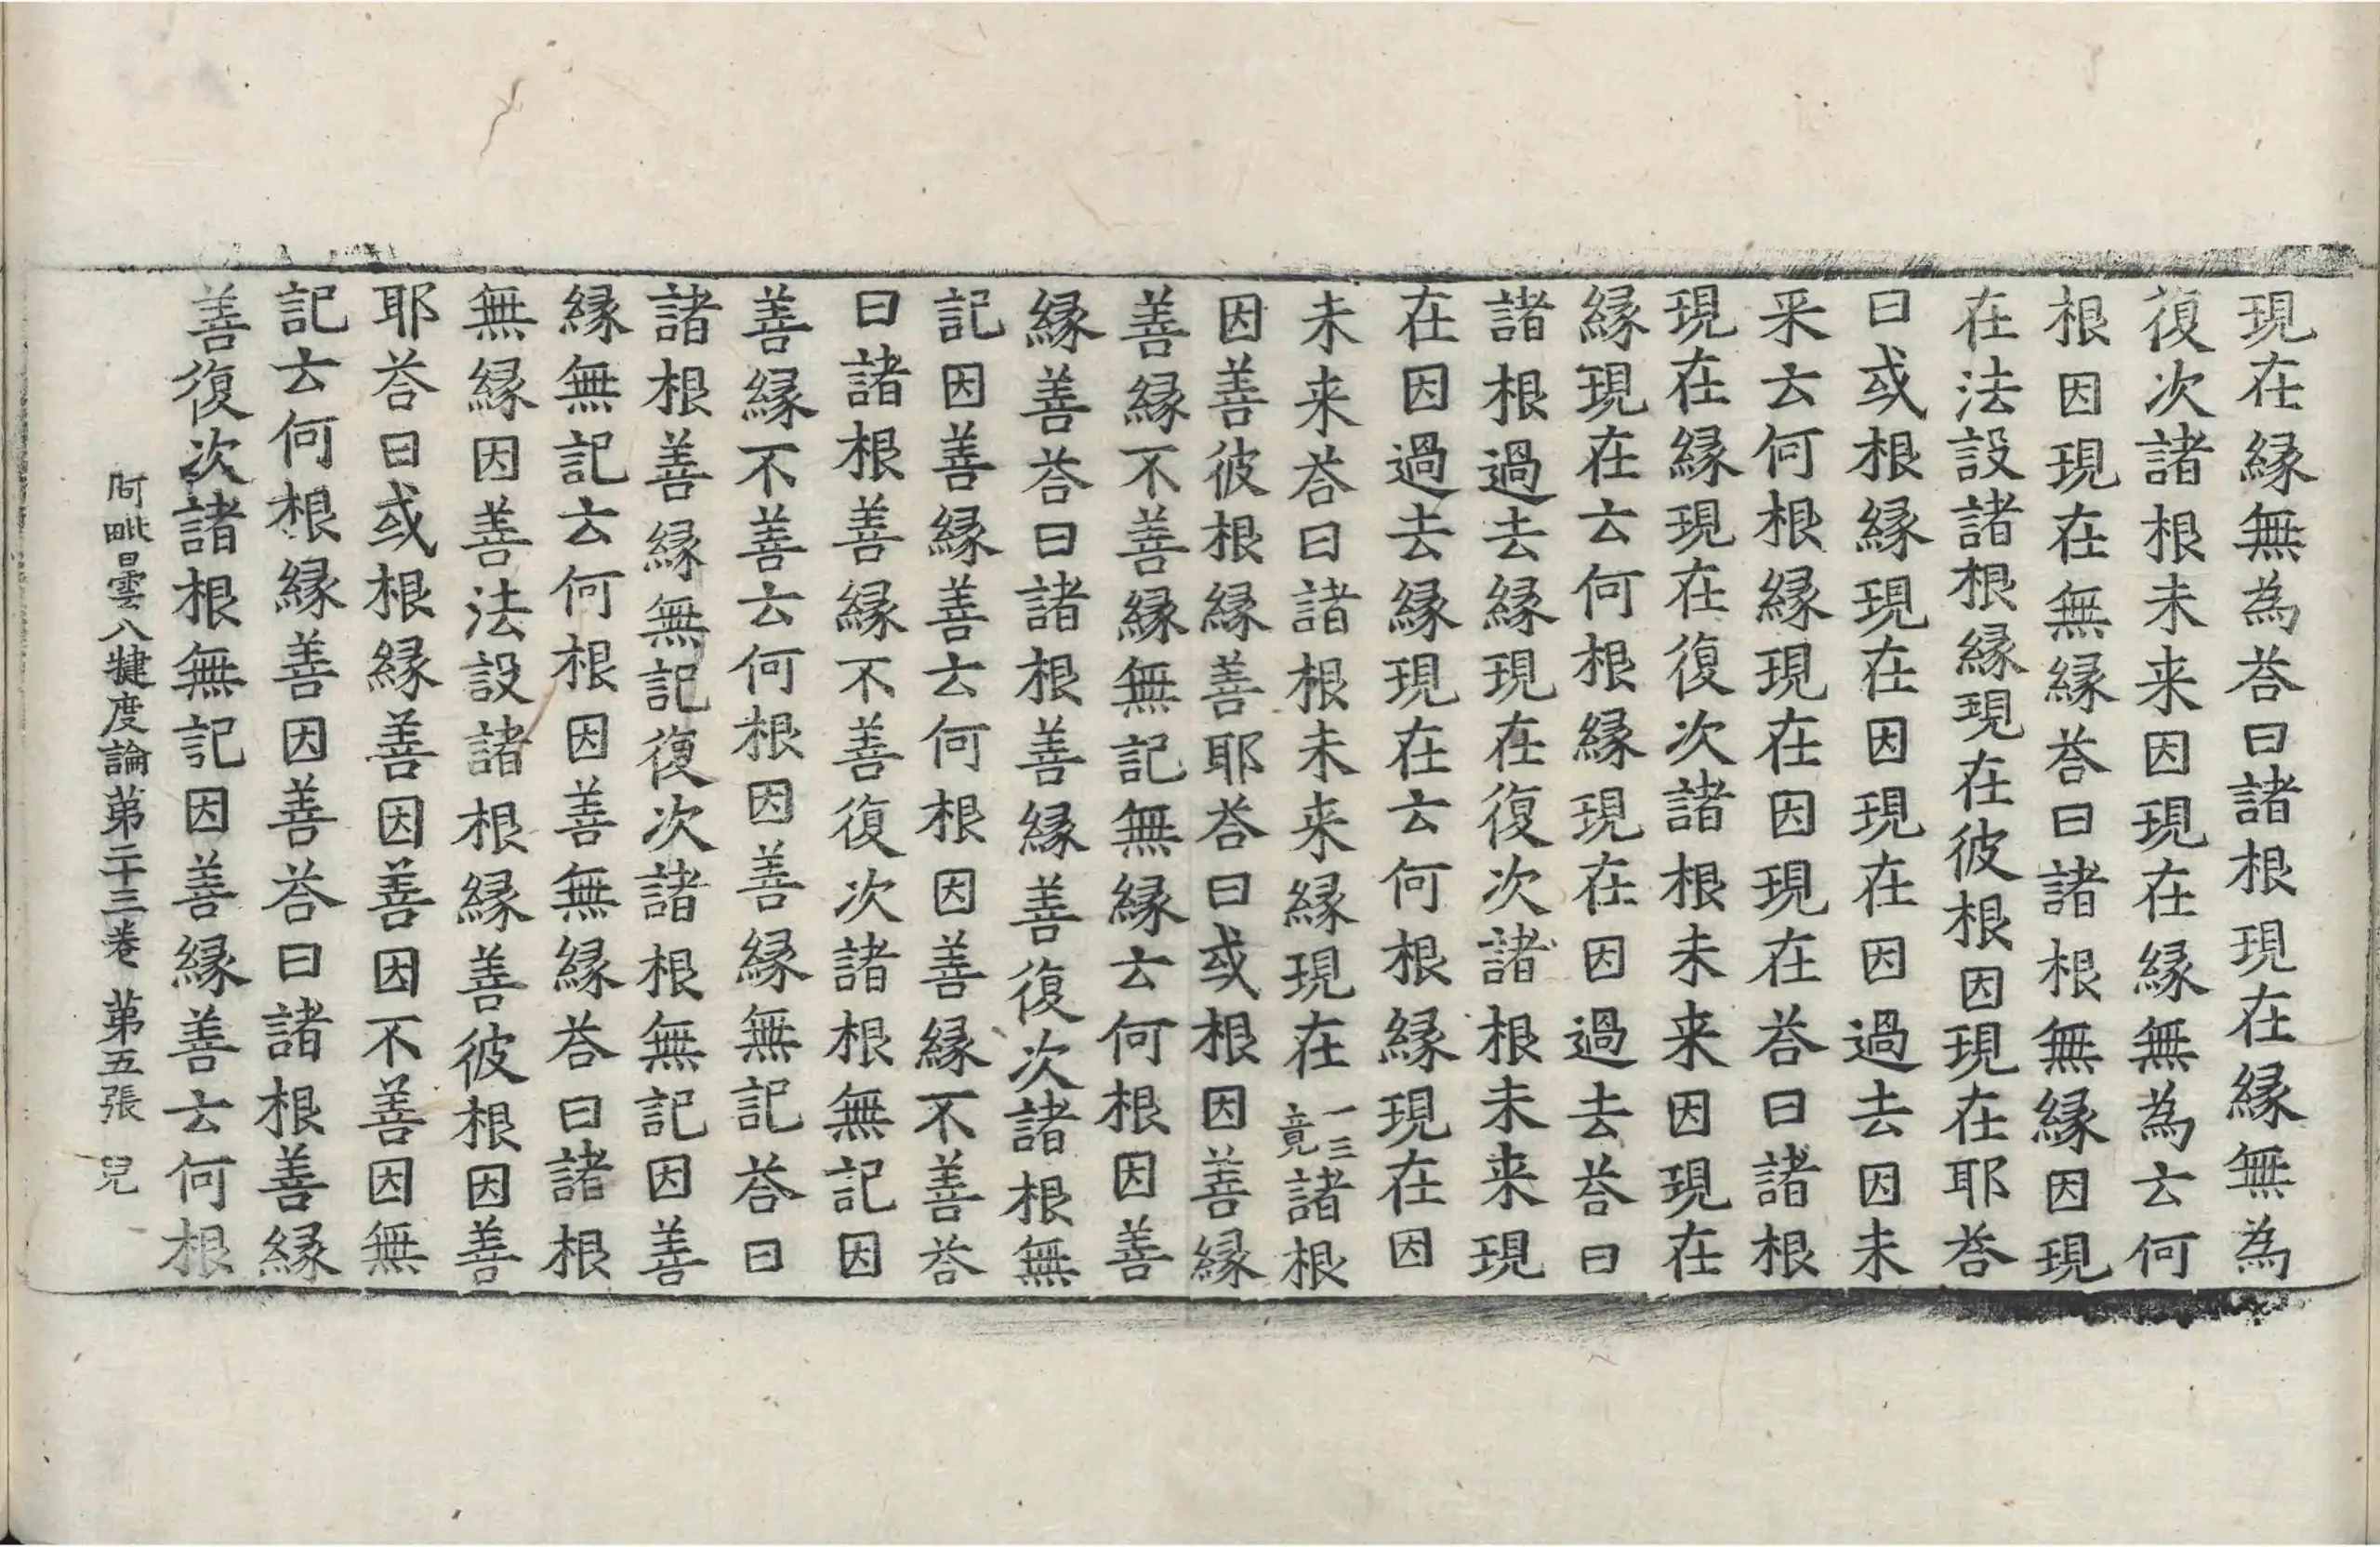 現在縁無為荅曰諸根現在縁無為
復次諸根未来因現在縁無為云何
根因現在無縁荅曰諸根無縁因現
在法設諸根縁現在彼根因現在耶荅
曰或根縁現在因現在因過去因未
来云何根縁現在因現在荅曰諸根
現在縁現在復次諸根未来因現在
縁現在云何根縁現在因過去荅曰
諸根過去縁現在復次諸根未来現
在因過去縁現在云何根縁現在因
未来荅曰諸根未来縁現在一三竟諸根
因善彼根縁善耶荅曰或根因善縁
善縁不善縁無記無縁云何根因善
縁善荅曰諸根善縁善復次諸根無
記因善縁善云何根因善縁不善荅
曰諸根善縁不善復次諸根無記因
善縁不善云何根因善縁無記荅曰
諸根善縁無記復次諸根無記因善
縁無記云何根因善無縁荅曰諸根
無縁因善法設諸根縁善彼根因善
耶荅曰或根縁善因善因不善因無
記云何根縁善因善荅曰諸根善縁
善復次諸根無記因善縁善云何根
阿毗曇八犍度論苐二十三卷 苐五張 兒